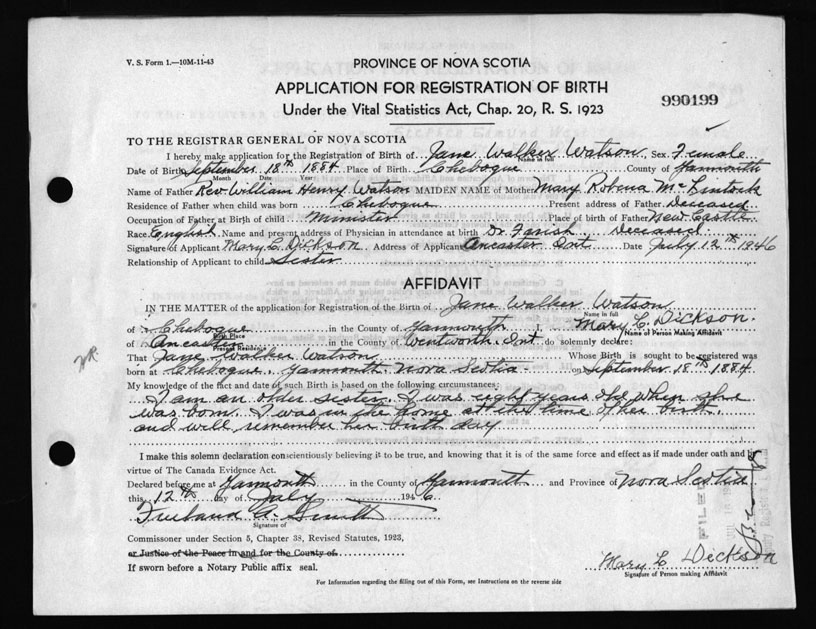 V. S. Form 1.—10M-11-43
PROVINCE OF NOVA SCOTIA
APPLICATION FOR REGISTRATION OF BIRTH
Under the Vital Statistics Act, Chap. 20, R. S. 1923
990199
TO THE REGISTRAR GENERAL OF NOVA SCOTIA
I hereby make application for the Registration of Birth of Jane Walker Watson Sex Female
Name in full
Date of Birth September 18th 1884 Place of Birth Chebogue County of Yarmouth
Month Date Year
Name of Father Rev. William Henry Watson MAIDEN NAME of Mother Mary Robena
Residence of Father when child was born Chebogue Present address of Father Deceased
Occupation of Father at Birth of child Minister Place of birth of Father New Castle
Race English Name and present address of Physician in attendance at birth Dr. Farish Deceased
Signature of Applicant Mary C. Dickson Address of Applicant Ancaster Ont. Date July 12th 1946
Relationship of Applicant to child Sister
AFFIDAVIT
IN THE MATTER of the application for Registration of the Birth of Jane Walker Watson
Name in full
of Chebogue in the County of Yarmouth I, Mary C. Dickson
Birth Place Name of Person Making Affidavit
of Ancaster in the County of Wentworth, Ont. do solemnly declare:
Present Residence
That Jane Walker Watson Whose Birth is sought to be registered was
born at Chebogue, Yarmouth, Nova Scotia on September 18th 1884
My knowledge of the fact and date of such Birth is based on the following circumstances:
I am an older sister. I was eight years old when she
was born. I was in the home at the time of her birth.
and well remember her birth day
I make this solemn declaration conscientiously believing it to be true, and knowing that it is of the same force and effect as if made under oath and by
virtue of The Canada Evidence Act.
Declared before me at Yarmouth in the County of Yarmouth and Province of Nova Scotia
this 12th day of July 1946
A. Smith
Signature of
Commissioner under Section 5, Chapter 38, Revised Statutes, 1923,
or Justice of the Peace in and for the County of
If sworn before a Notary Public affix seal.
Mary C. Dickson
Signature of Person making Affidavit
For Information regarding the filling out of this Form, see Instructions on the reverse side
FILED